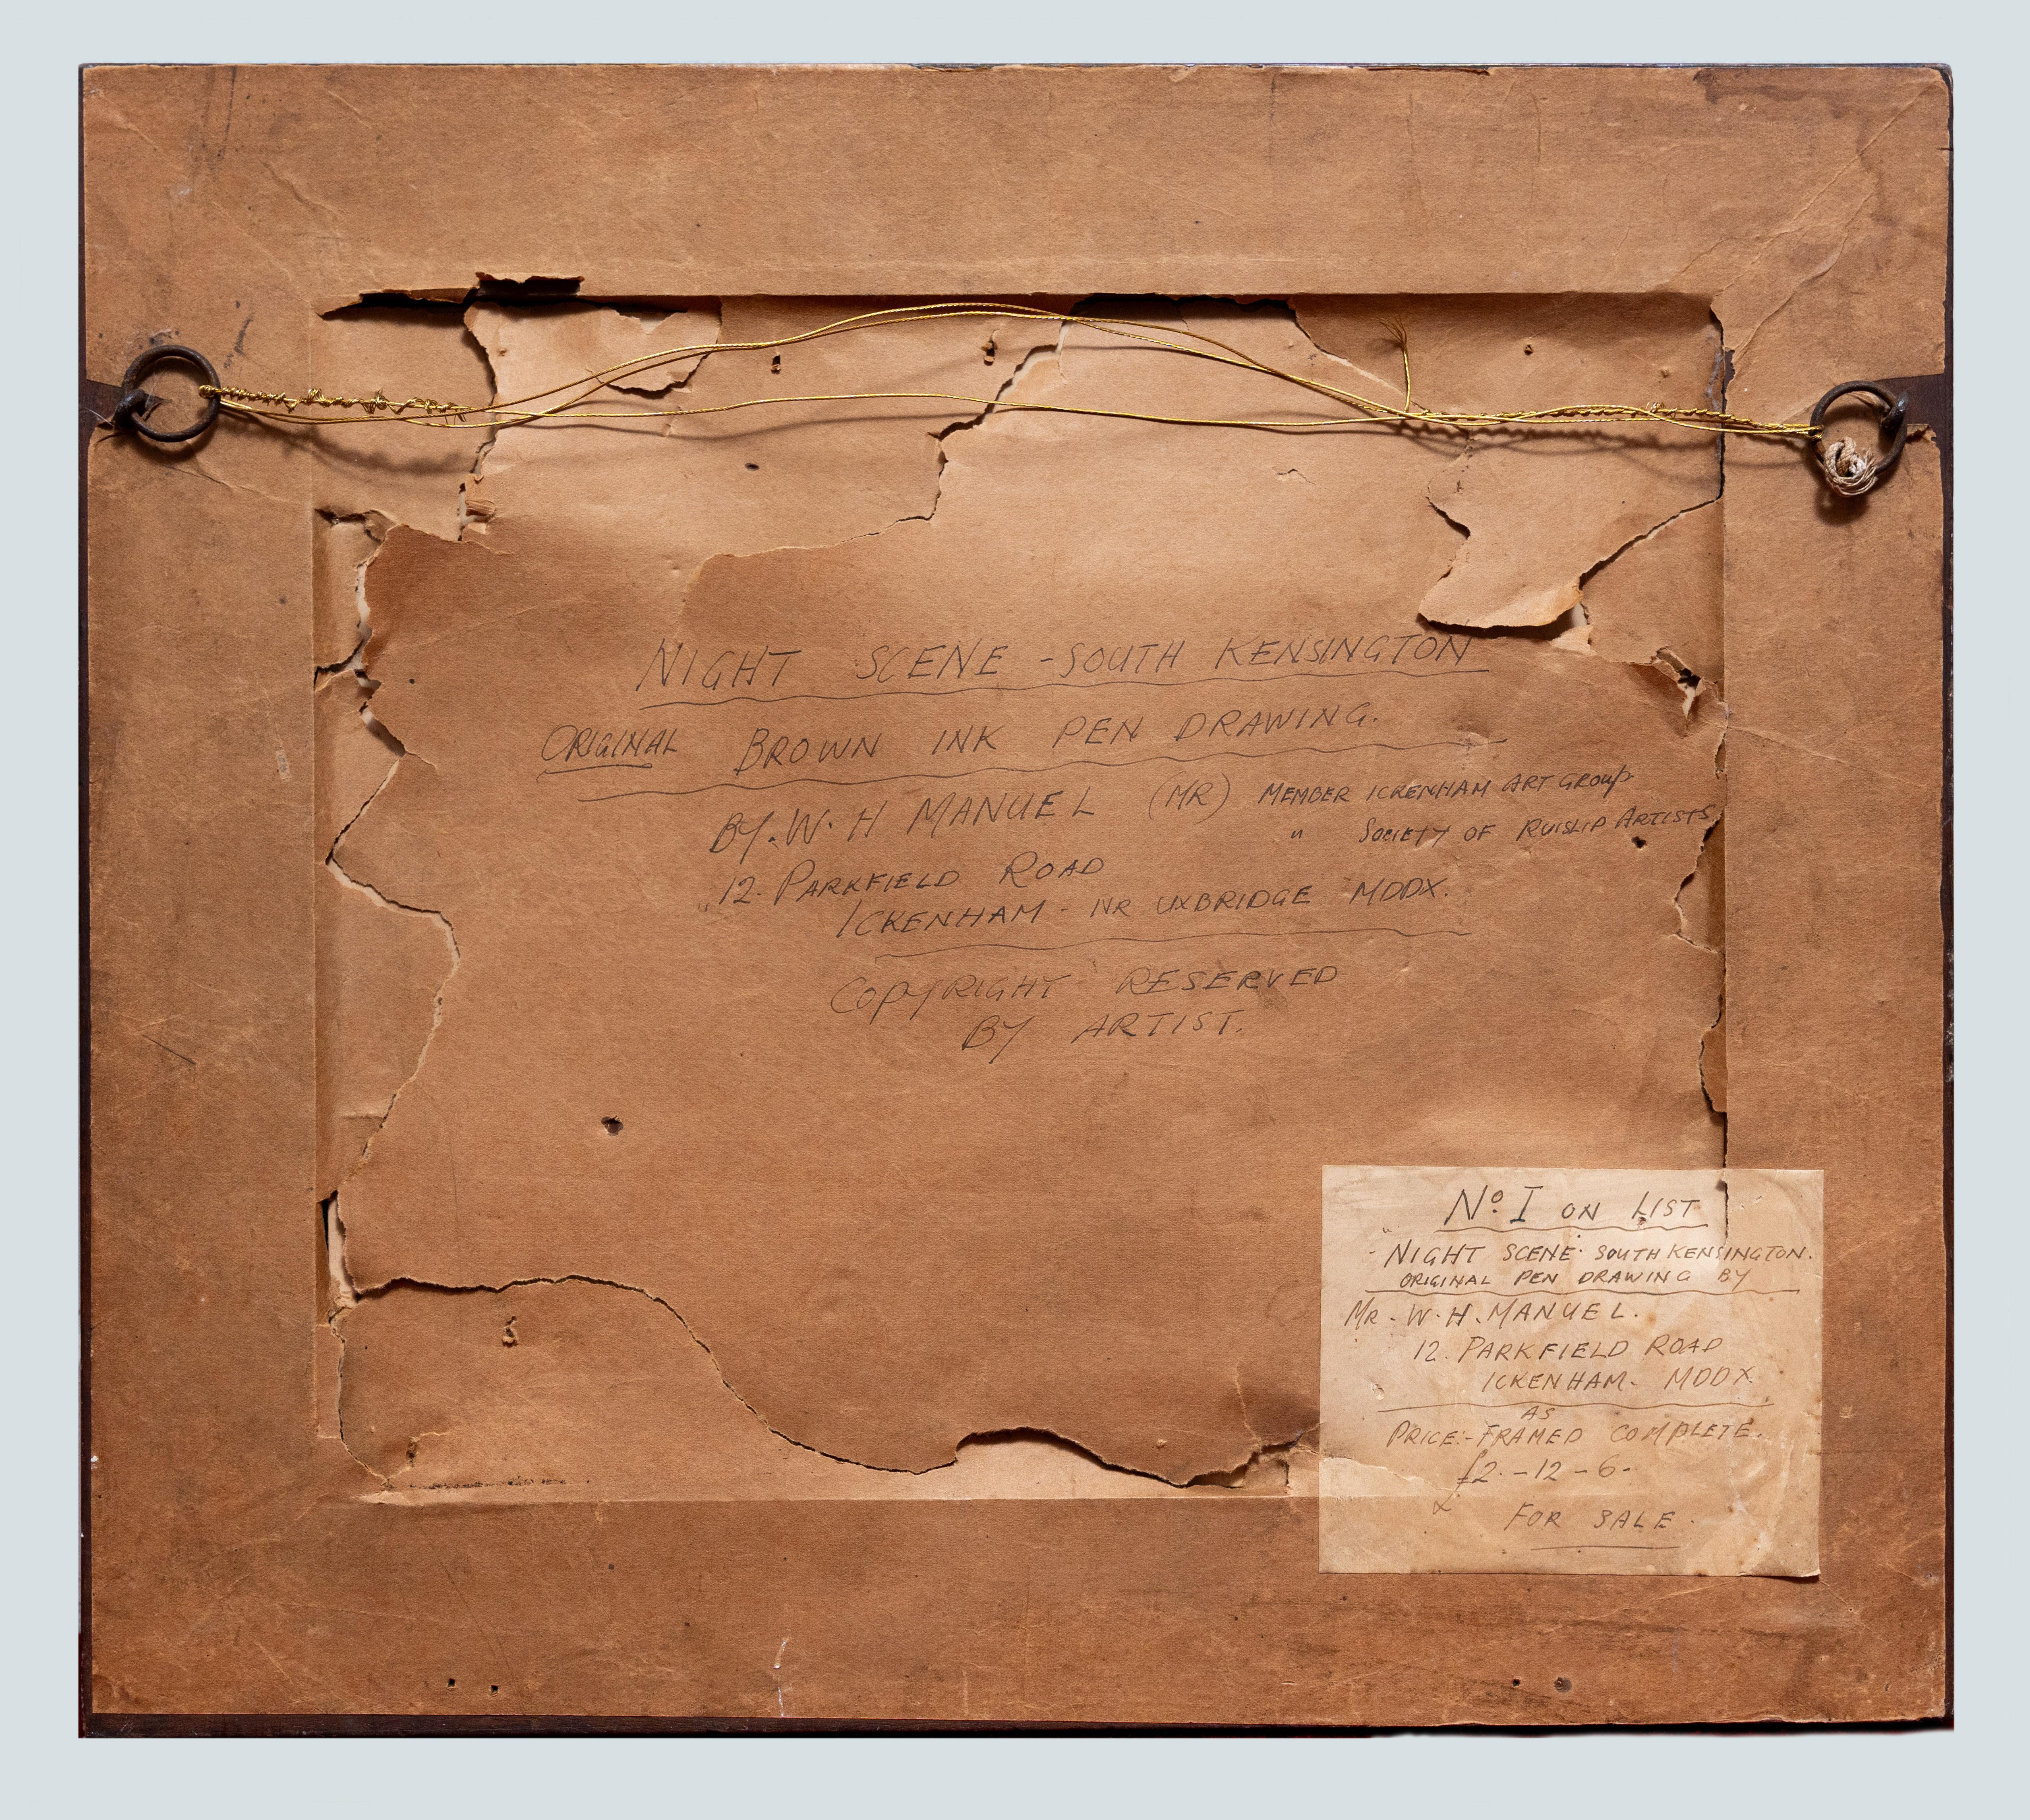 NIGHT SCENE - SOUTH KENSINGTON
ORIGINAL BROWN INK PEN DRAWING.
BY. W. H MANUEL (MR) MEMBER ICKENHAM ART GROUP
" SOCIETY OF RUISLIP ARTISTS
12. PARKFIELD ROAD
ICKENHAM - NR UXBRIDGE MDDX.
COPYRIGHT RESERVED
BY ARTIST.
No. I ON LIST
- NIGHT SCENE. SOUTH KENSINGTON.
ORIGINAL PEN DRAWING BY
MR. W. H. MANUEL.
12. PARKFIELD ROAD
ICKENHAM. MDDX
AS
PRICE:- FRAMED COMPLETE.
£2. - 12 - 6 -
FOR SALE.